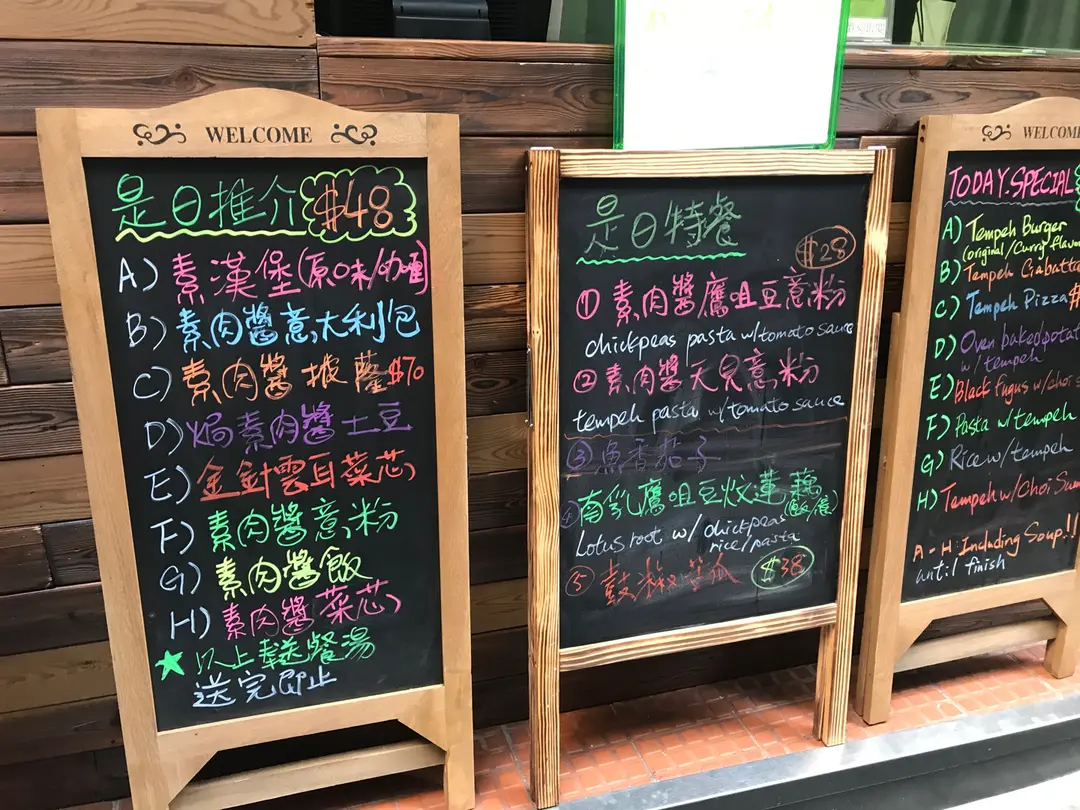 WELCOME
是日推介 $48
A) 素漢堡(原味/咖喱)
B) 素肉醬意大利包
C) 素肉醬披薩$70
D) 焗素肉醬土豆
E) 金針雲耳菜芯
F) 素肉醬意粉
G) 素肉醬飯
H) 素肉醬菜芯
★ 以上奉送餐湯
送完即止
是日特餐
$28
① 素肉醬鷹咀豆意粉
chickpeas pasta w/tomato sauce
② 素肉醬天貝意粉
tempeh pasta w/tomato sauce
③ 魚香茄子
④ 南乳鷹咀豆炆蓮藕
Lotus root w/ chickpeas
rice/pasta
⑤ 鼓椒苦瓜 $38
WELCOM
TODAY.SPECIAL
A) Tempeh Burger
(original/Curry flavo
B) Tempeh Ciabatta
C) Tempeh Pizza $
D) Oven baked potat
w/tempeh
E) Black fugus w/choi s
F) Pasta w/tempeh
G) Rice w/tempeh
H) Tempeh w/Choi Sum
A-H Including Soup!!
until finish